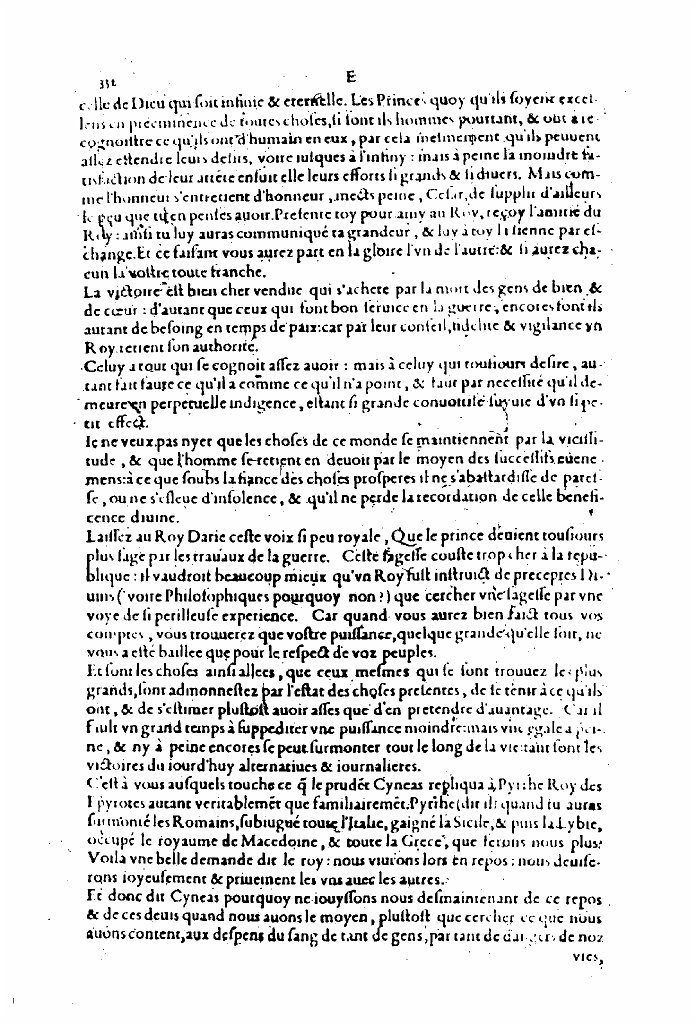 332 E
celle de Dieu qui soit infinie & eternelle. Les Princes quoy qu'ils soyent excel-
lens en préeminence de toutes choses, si sont ils hommes pourtant, & ont à re-
cognoistre ce qu'ils ont d'humain en eux, par cela mesmement qu'ils peuuent
assez estendre leurs desirs, voire iusques à l'infiny : mais à peine la moindre sa-
tisfaction de leur attéte ensuit elle leurs efforts si grands & si diuers. Mais com-
me l'honneur s'entretient d'honneur, mects peine, Cesar, de supplir d'ailleurs
le peu que tu en penses auoir. Presente toy pour amy au Roy, reçoy l'amitié du
Roy : ainsi tu luy auras communiqué ta grandeur, & luy à toy la sienne par es-
change. Et ce faisant vous aurez part en la gloire l'vn de l'autre: & si aurez cha-
cun la vostre toute franche.
La victoire est bien cher vendue qui s'achete par la mort des gens de bien &
de cœur : d'autant que ceux qui font bon seruice en la guerre, encores sont ils
autant de besoing en temps de paix: car par leur conseil, fidelité & vigilance vn
Roy retient son authorité.
Celuy a tout qui se cognoit assez auoir : mais à celuy qui tousiours desire, au-
tant fait faute ce qu'il a comme ce qu'il n'a point, & faut par necessité qu'il de-
meure en perpetuelle indigence, estant si grande conuoitise suyuie d'vn si pe-
tit effect.
Ie ne veux pas nyer que les choses de ce monde se maintiennent par la vicissi-
tude, & que l'homme se retient en deuoir par le moyen des successifs euene-
mens: à ce que soubs la fiance des choses prosperes il ne s'abastardisse de pares-
se, ou ne s'esleue d'insolence, & qu'il ne perde la recordation de celle benefi-
cence diuine.
Laissez au Roy Darie ceste voix si peu royale, Que le prince deuient tousiours
plus sage par les trauaux de la guerre. Ceste sagesse couste trop cher à la repu-
blique : il vaudroit beaucoup mieux qu'vn Roy fust instruict de preceptes Di-
uins (voire Philosophiques pourquoy non?) que cercher vne sagesse par vne
voye de si perilleuse experience. Car quand vous aurez bien faict tous vos
comptes, vous trouuerez que vostre puissance, quelque grande qu'elle soit, ne
vous a esté baillee que pour le respect de voz peuples.
Et sont les choses ainsi allees, que ceux mesmes qui se sont trouuez les plus
grands, sont admonnestez par l'estat des choses presentes, de se tenir à ce qu'ils
ont, & de s'estimer plustost auoir asses que d'en pretendre d'auantage. Car il
fault vn grand temps à suppediter vne puissance moindre: mais vne egale à pei-
ne, & ny à peine encores se peut surmonter tout le long de la vie: tant sont les
victoires du iourd'huy alternatiues & iournalieres.
C'est à vous ausquels touche ce q̃ le prudẽt Cyneas repliqua à Pyrrhe Roy des
Epyrotes autant veritablemẽt que familiairemẽt. Pyrrhe (dit il) quand tu auras
surmonté les Romains, subiugué toute l'Italie, gaigné la Sicile, & puis la Lybie,
occupé le royaume de Macedoine, & toute la Grece, que ferons nous plus?
Voila vne belle demande dit le roy : nous viurons lors en repos : nous deuise-
rons ioyeusement & priuement les vns auec les autres.
Et donc dit Cyneas pourquoy ne iouyssons nous desmaintenant de ce repos
& de ces deuis quand nous auons le moyen, plustost que cercher ce que nous
auons content, aux despens du sang de tant de gens, par tant de dangers de noz
vies,